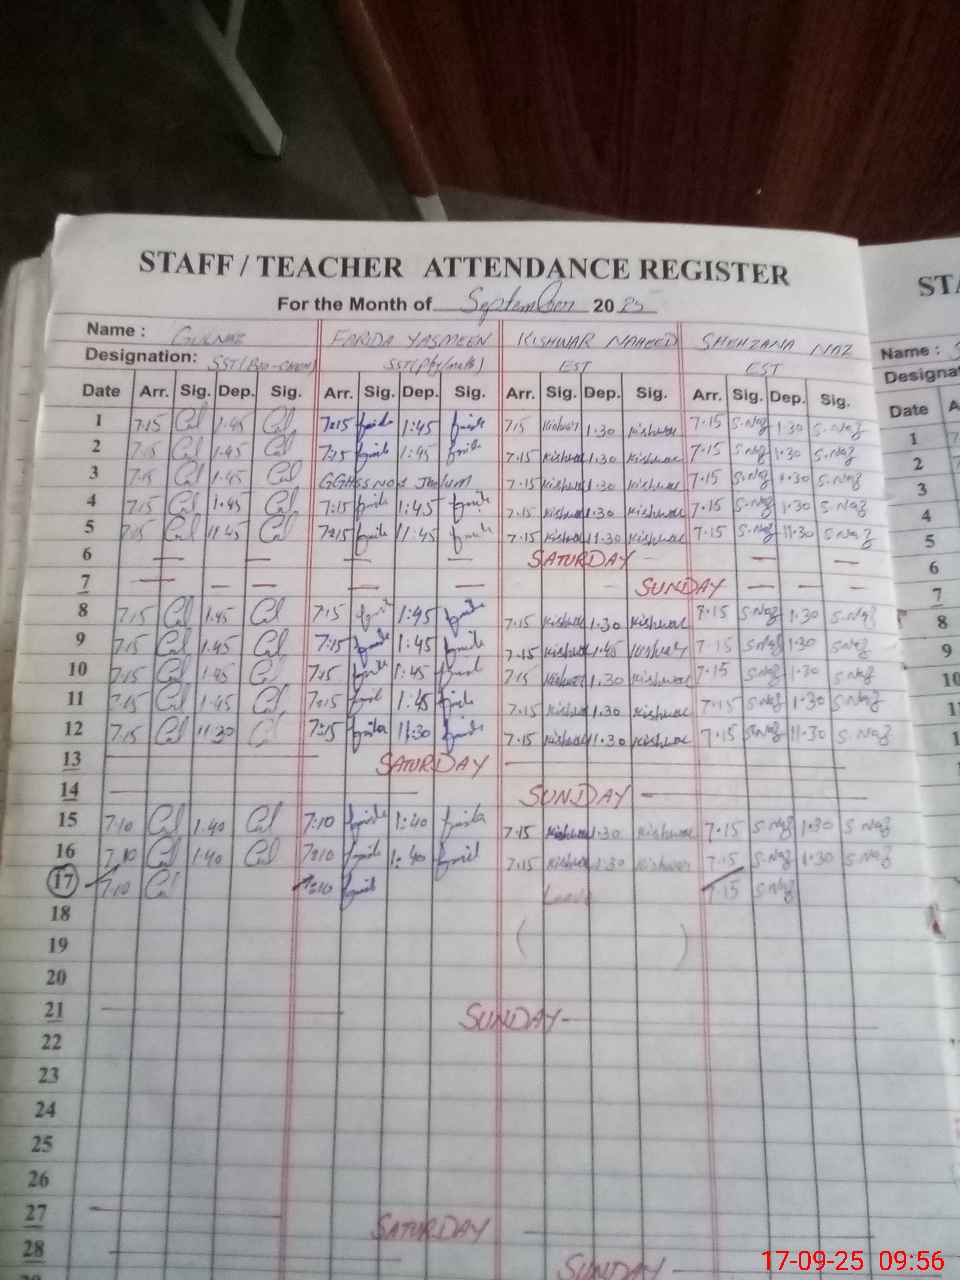 STAFF / TEACHER ATTENDANCE REGISTER
For the Month of September 2025
Name : GULNAZ FARIDA YASMEEN KISHWAR NAHEED SHEHZANA NAZ
Designation: SST(Bio-Chem) SST(Phy/math) EST EST
Date Arr. Sig. Dep. Sig. Arr. Sig. Dep. Sig. Arr. Sig. Dep. Sig. Arr. Sig. Dep. Sig.
1 7:15 1:45 7:15 1:45 7:15 Kishwar 1:30 Kishwar 7:15 S.Naz 1:30 S.Naz
2 7:15 1:45 7:15 1:45 7:15 Kishwar 1:30 Kishwar 7:15 S.Naz 1:30 S.Naz
3 7:15 1:45 7:15 Kishwar 1:30 Kishwar 7:15 S.Naz 1:30 S.Naz
4 7:15 1:45 7:15 1:45 7:15 Kishwar 1:30 Kishwar 7:15 S.Naz 1:30 S.Naz
5 7:15 11:45 7:15 11:45 7:15 Kishwar 11:30 Kishwar 7:15 S.Naz 11:30 S.Naz
6 SATURDAY
7 SUNDAY
8 7:15 1:45 7:15 1:45 7:15 Kishwar 1:30 Kishwar 7:15 S.Naz 1:30 S.Naz
9 7:15 1:45 7:15 1:45 7:15 Kishwar 1:45 Kishwar 7:15 S.Naz 1:30 S.Naz
10 7:15 1:45 7:15 1:45 7:15 Kishwar 1:30 Kishwar 7:15 S.Naz 1:30 S.Naz
11 7:15 1:45 7:15 1:45 7:15 Kishwar 1:30 Kishwar 7:15 S.Naz 1:30 S.Naz
12 7:15 11:30 7:15 11:30 7:15 Kishwar 11:30 Kishwar 7:15 S.Naz 11:30 S.Naz
13 SATURDAY
14 SUNDAY
15 7:10 1:40 7:10 1:40 7:15 Kishwar 1:30 Kishwar 7:15 S.Naz 1:30 S.Naz
16 7:10 1:40 7:10 1:40 7:15 Kishwar 1:30 Kishwar 7:15 S.Naz 1:30 S.Naz
17 7:10 7:10 Leave 7:15 S.Naz
18
19
20
21 SUNDAY
22
23
24
25
26
27 SATURDAY
28 SUNDAY
STA
Name :
Designa
Date A
1
2
3
4
5
6
7
8
9
10
11
12
17-09-25 09:56